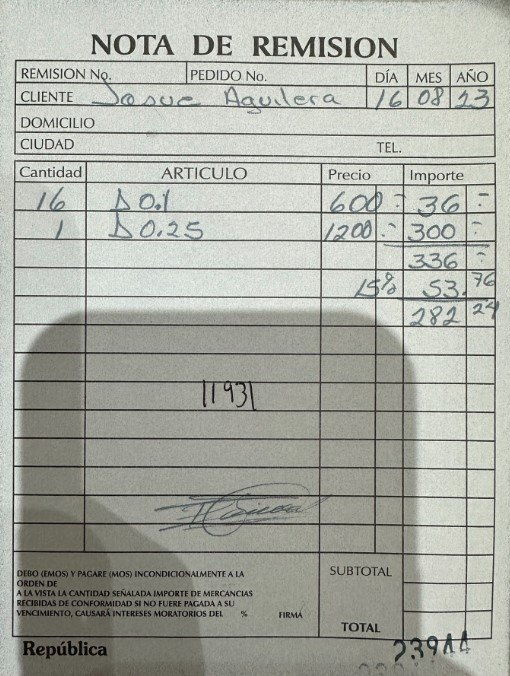 NOTA DE REMISION
REMISION No. PEDIDO No. DÍA MES AÑO
CLIENTE Josue Aguilera 16 08 23
DOMICILIO
CIUDAD TEL.
Cantidad ARTICULO Precio Importe
16 D 0.1 600 .- 36 .-
1 D 0.25 1200 .- 300 .-
336 .-
15% 53.76
282 24
11931
DEBO (EMOS) Y PAGARE (MOS) INCONDICIONALMENTE A LA
ORDEN DE
A LA VISTA LA CANTIDAD SEÑALADA IMPORTE DE MERCANCIAS
RECIBIDAS DE CONFORMIDAD SI NO FUERE PAGADA A SU
VENCIMIENTO, CAUSARÁ INTERESES MORATORIOS DEL % FIRMÁ
SUBTOTAL
TOTAL
República
23944